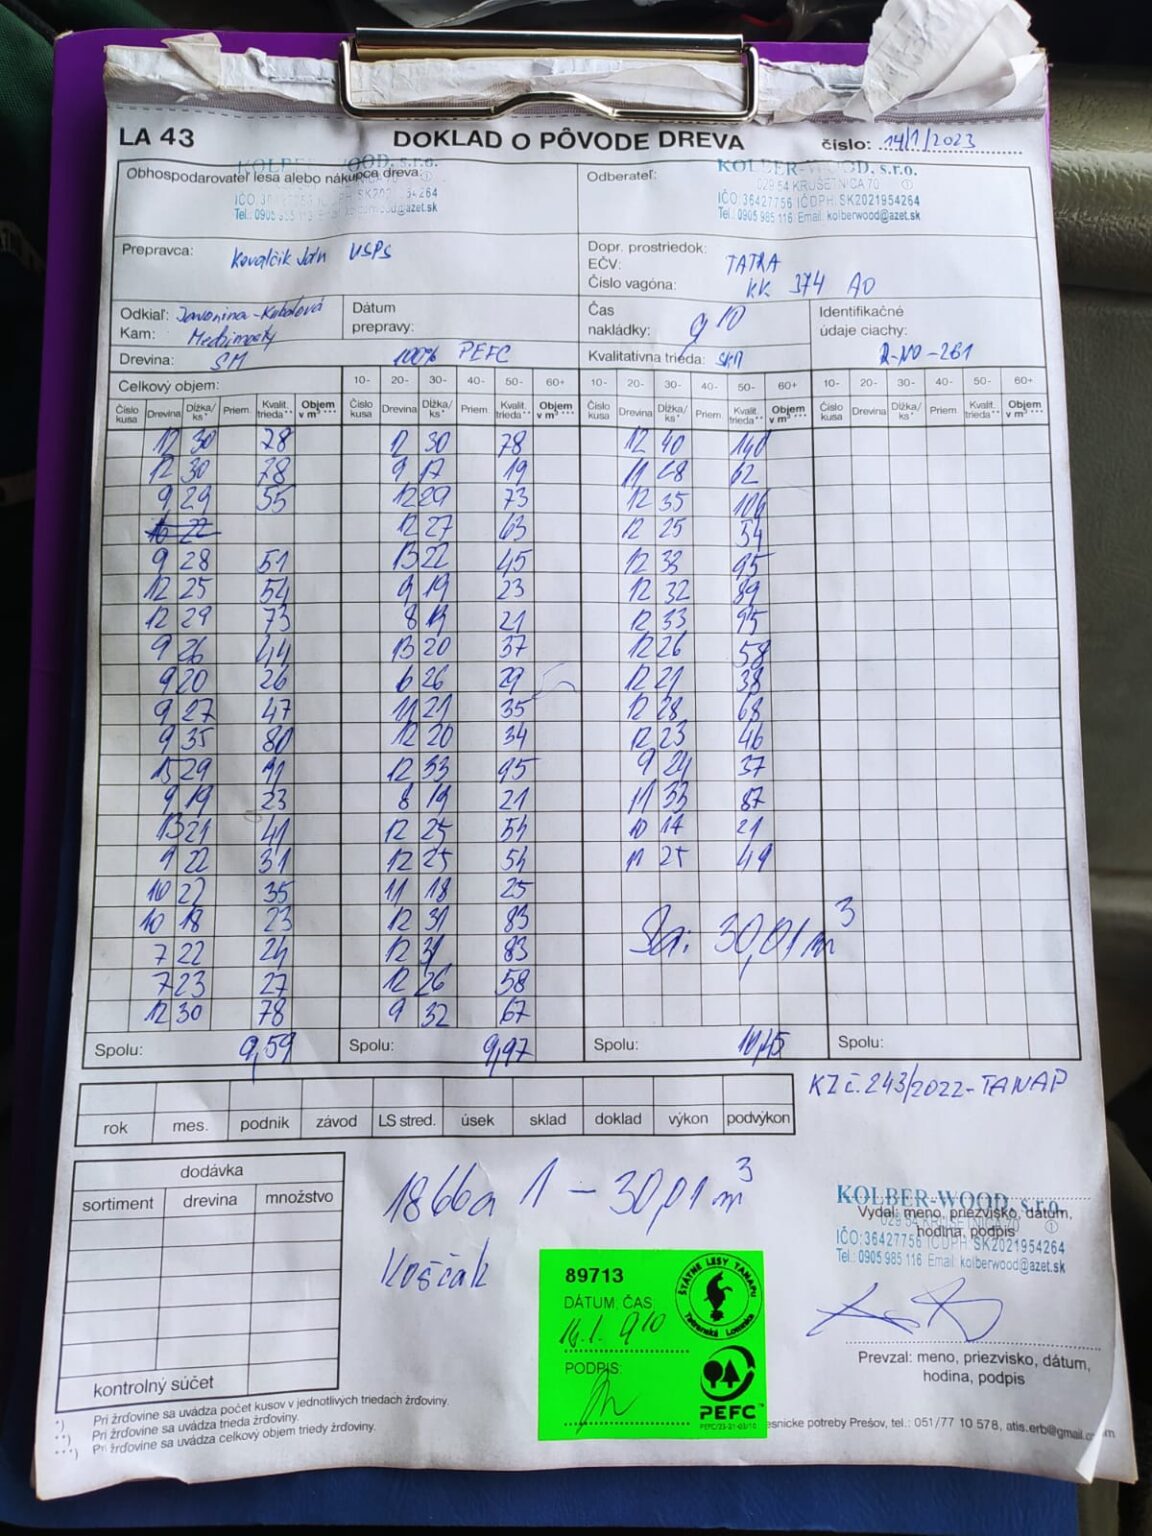 LA 43 DOKLAD O PÔVODE DREVA číslo: 14/1/2023
KOLBER-WOOD, s.r.o.
Obhospodarovateľ lesa alebo nákupca dreva
Tel.: 0905 985 116 @azet.sk
Odberateľ: KOLBER-WOOD, s.r.o.
029 54 KRUŠETNICA 70
IČO:36427756 IČDPH:SK2021954264
Tel.: 0905 985 116 Email: kolberwood@azet.sk
Prepravca: Kovalčik Ján
Dopr. prostriedok:
EČV: TATRA
Číslo vagóna: KK 374 AO
Odkiaľ: Javorina -
Kam:
Dátum
prepravy:
Čas
nakládky: 9 10
Identifikačné
údaje ciachy:
Drevina: SM 100% PEFC
Kvalitatívna trieda:
Celkový objem: 10- 20- 30- 40- 50- 60+ 10- 20- 30- 40- 50- 60+ 10- 20- 30- 40- 50- 60+
Číslo kusa Drevina Dĺžka/ks* Priem. Kvalit. trieda** Objem v m³*** Číslo kusa Drevina Dĺžka/ks* Priem. Kvalit. trieda** Objem v m³*** Číslo kusa Drevina Dĺžka/ks* Priem. Kvalit. trieda** Objem v m³*** Číslo kusa Drevina Dĺžka/ks* Priem. Kvalit. trieda** Objem v m³***
12 30 78 12 30 78 12 40 140
12 30 78 9 17 19 11 28 62
9 29 55 12 29 73 12 35 106
16 22 12 27 63 12 25 54
9 28 51 13 22 45 12 33 95
12 25 54 9 19 23 12 32 89
12 29 73 8 19 21 12 33 95
9 26 44 13 20 37 12 26 58
9 20 26 6 26 29 12 21 38
9 27 47 11 21 35 12 28 68
9 35 80 12 20 34 12 23 46
15 29 91 12 33 95 9 24 37
9 19 23 8 19 21 11 33 87
13 21 41 12 25 54 10 17 21
9 22 31 12 25 54 11 25 49
10 22 35 11 18 25
10 18 23 12 31 83
7 22 24 12 31 83
7 23 27 12 26 58
12 30 78 9 32 67
30,01 m³
Spolu: 9,59 Spolu: 9,97 Spolu: 10,45 Spolu:
KZ č. 243/2022-TANAP
rok mes. podnik závod LS stred. úsek sklad doklad výkon podvýkon
dodávka
sortiment drevina množstvo
kontrolný súčet
1866a 1 - 30,01 m³
Koščák
KOLBER-WOOD, s.r.o.
Vydal: meno, priezvisko, dátum,
hodina, podpis
029 54 KRUŠETNICA 70
IČO:36427756 IČDPH:SK2021954264
Tel.: 0905 985 116 Email: kolberwood@azet.sk
Prevzal: meno, priezvisko, dátum,
hodina, podpis
89713
DÁTUM, ČAS
14.1. 9 10
PODPIS:
ŠTÁTNE LESY TANAPu
Tatranská Lomnica
PEFC
*) Pri žrďovine sa uvádza počet kusov v jednotlivých triedach žrďoviny.
**) Pri žrďovine sa uvádza trieda žrďoviny.
***) Pri žrďovine sa uvádza celkový objem triedy žrďoviny.
potreby Prešov, tel.: 051/77 10 578, atis.erb@gmail.com